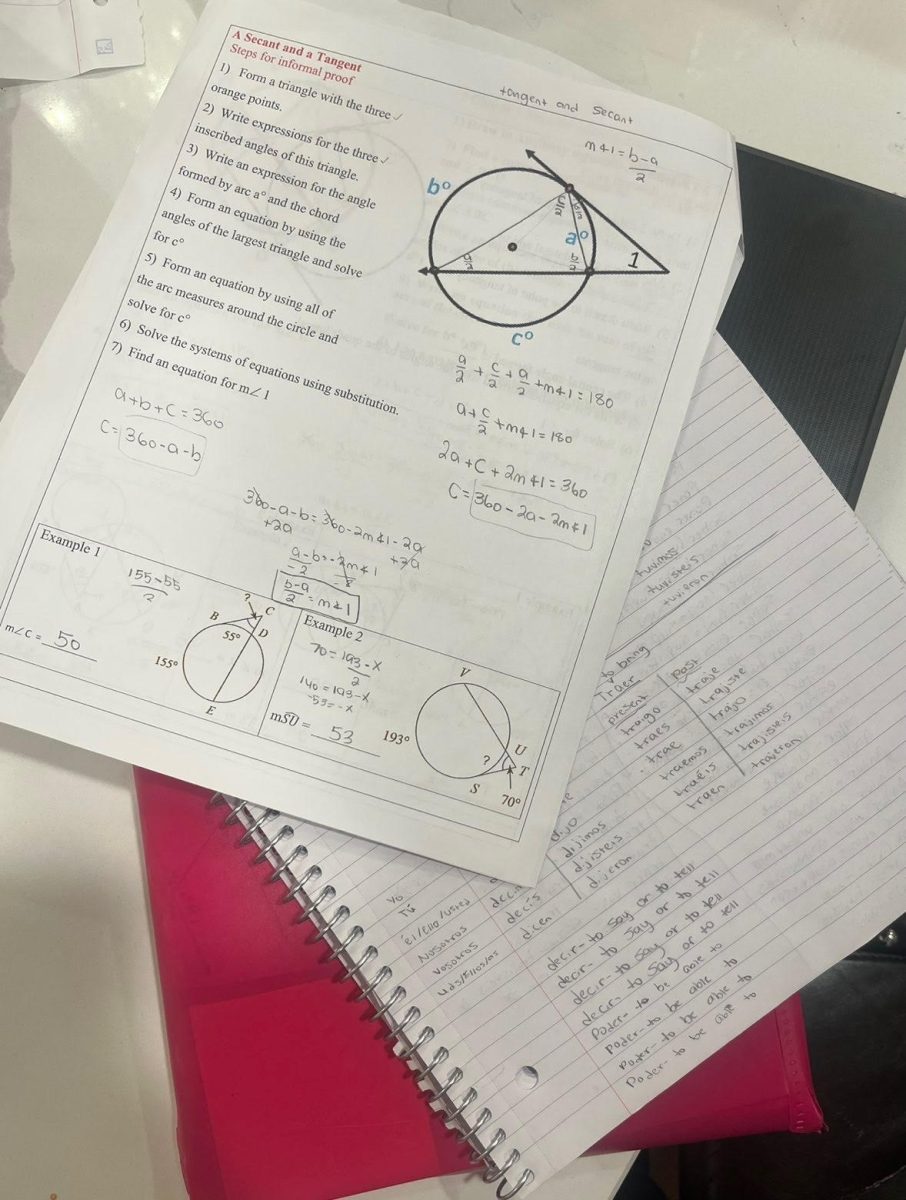 A Secant and a Tangent
Steps for informal proof
1) Form a triangle with the three ✓
orange points.
2) Write expressions for the three ✓
inscribed angles of this triangle.
3) Write an expression for the angle
formed by arc a° and the chord
4) Form an equation by using the
angles of the largest triangle and solve
for c°
5) Form an equation by using all of
the arc measures around the circle and
solve for c°
6) Solve the systems of equations using substitution.
7) Find an equation for m∠1
tangent and secant
m∠1 = b-a/2
b°
c/2
a/2
a°
a/2
b/2
1
c°
a/2 + c/2 + a/2 + m∠1 = 180
a + c/2 + m∠1 = 180
2a + c + 2m∠1 = 360
c = 360 - 2a - 2m∠1
a+b+c = 360
c = 360-a-b
360-a-b = 360-2m∠1-2a
+2a +2a
a-b = -2m∠1
-2 -2
b-a/2 = m∠1
Example 1
155-55/2
m∠C = 50
?
B
C
55°
D
155°
E
Example 2
70 = 193-x/2
140 = 193-x
-53 = -x
mSU = 53
V
193°
U
?
T
S
70°
tuvimos
tuvisteis
tuvieron
to bring
Traer
present
past
traigo
traje
traes
trajiste
trae
trajo
traemos
trajimos
traéis
trajisteis
traen
trajeron
dijo
dijimos
dijisteis
dijeron
decís
dicen
yo
Tú
él/ella/usted
Nosotros
Vosotros
uds/ellos/as
decir- to say or to tell
decir- to say or to tell
decir- to say or to tell
decir- to say or to tell
Poder- to be able to
Poder- to be able to
Poder- to be able to
Poder- to be able to